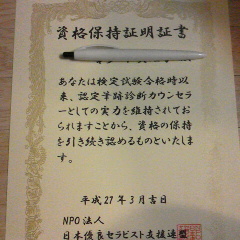 資格保持証明証書
あなたは検定試験合格時以
来、認定筆跡診断カウンセラ
ーとしての実力を維持されてお
られますことから、資格の保持
を引き続き認めるものといたしま
す。
平成27年3月吉日
NPO法人
日本優良セラピスト支援連盟